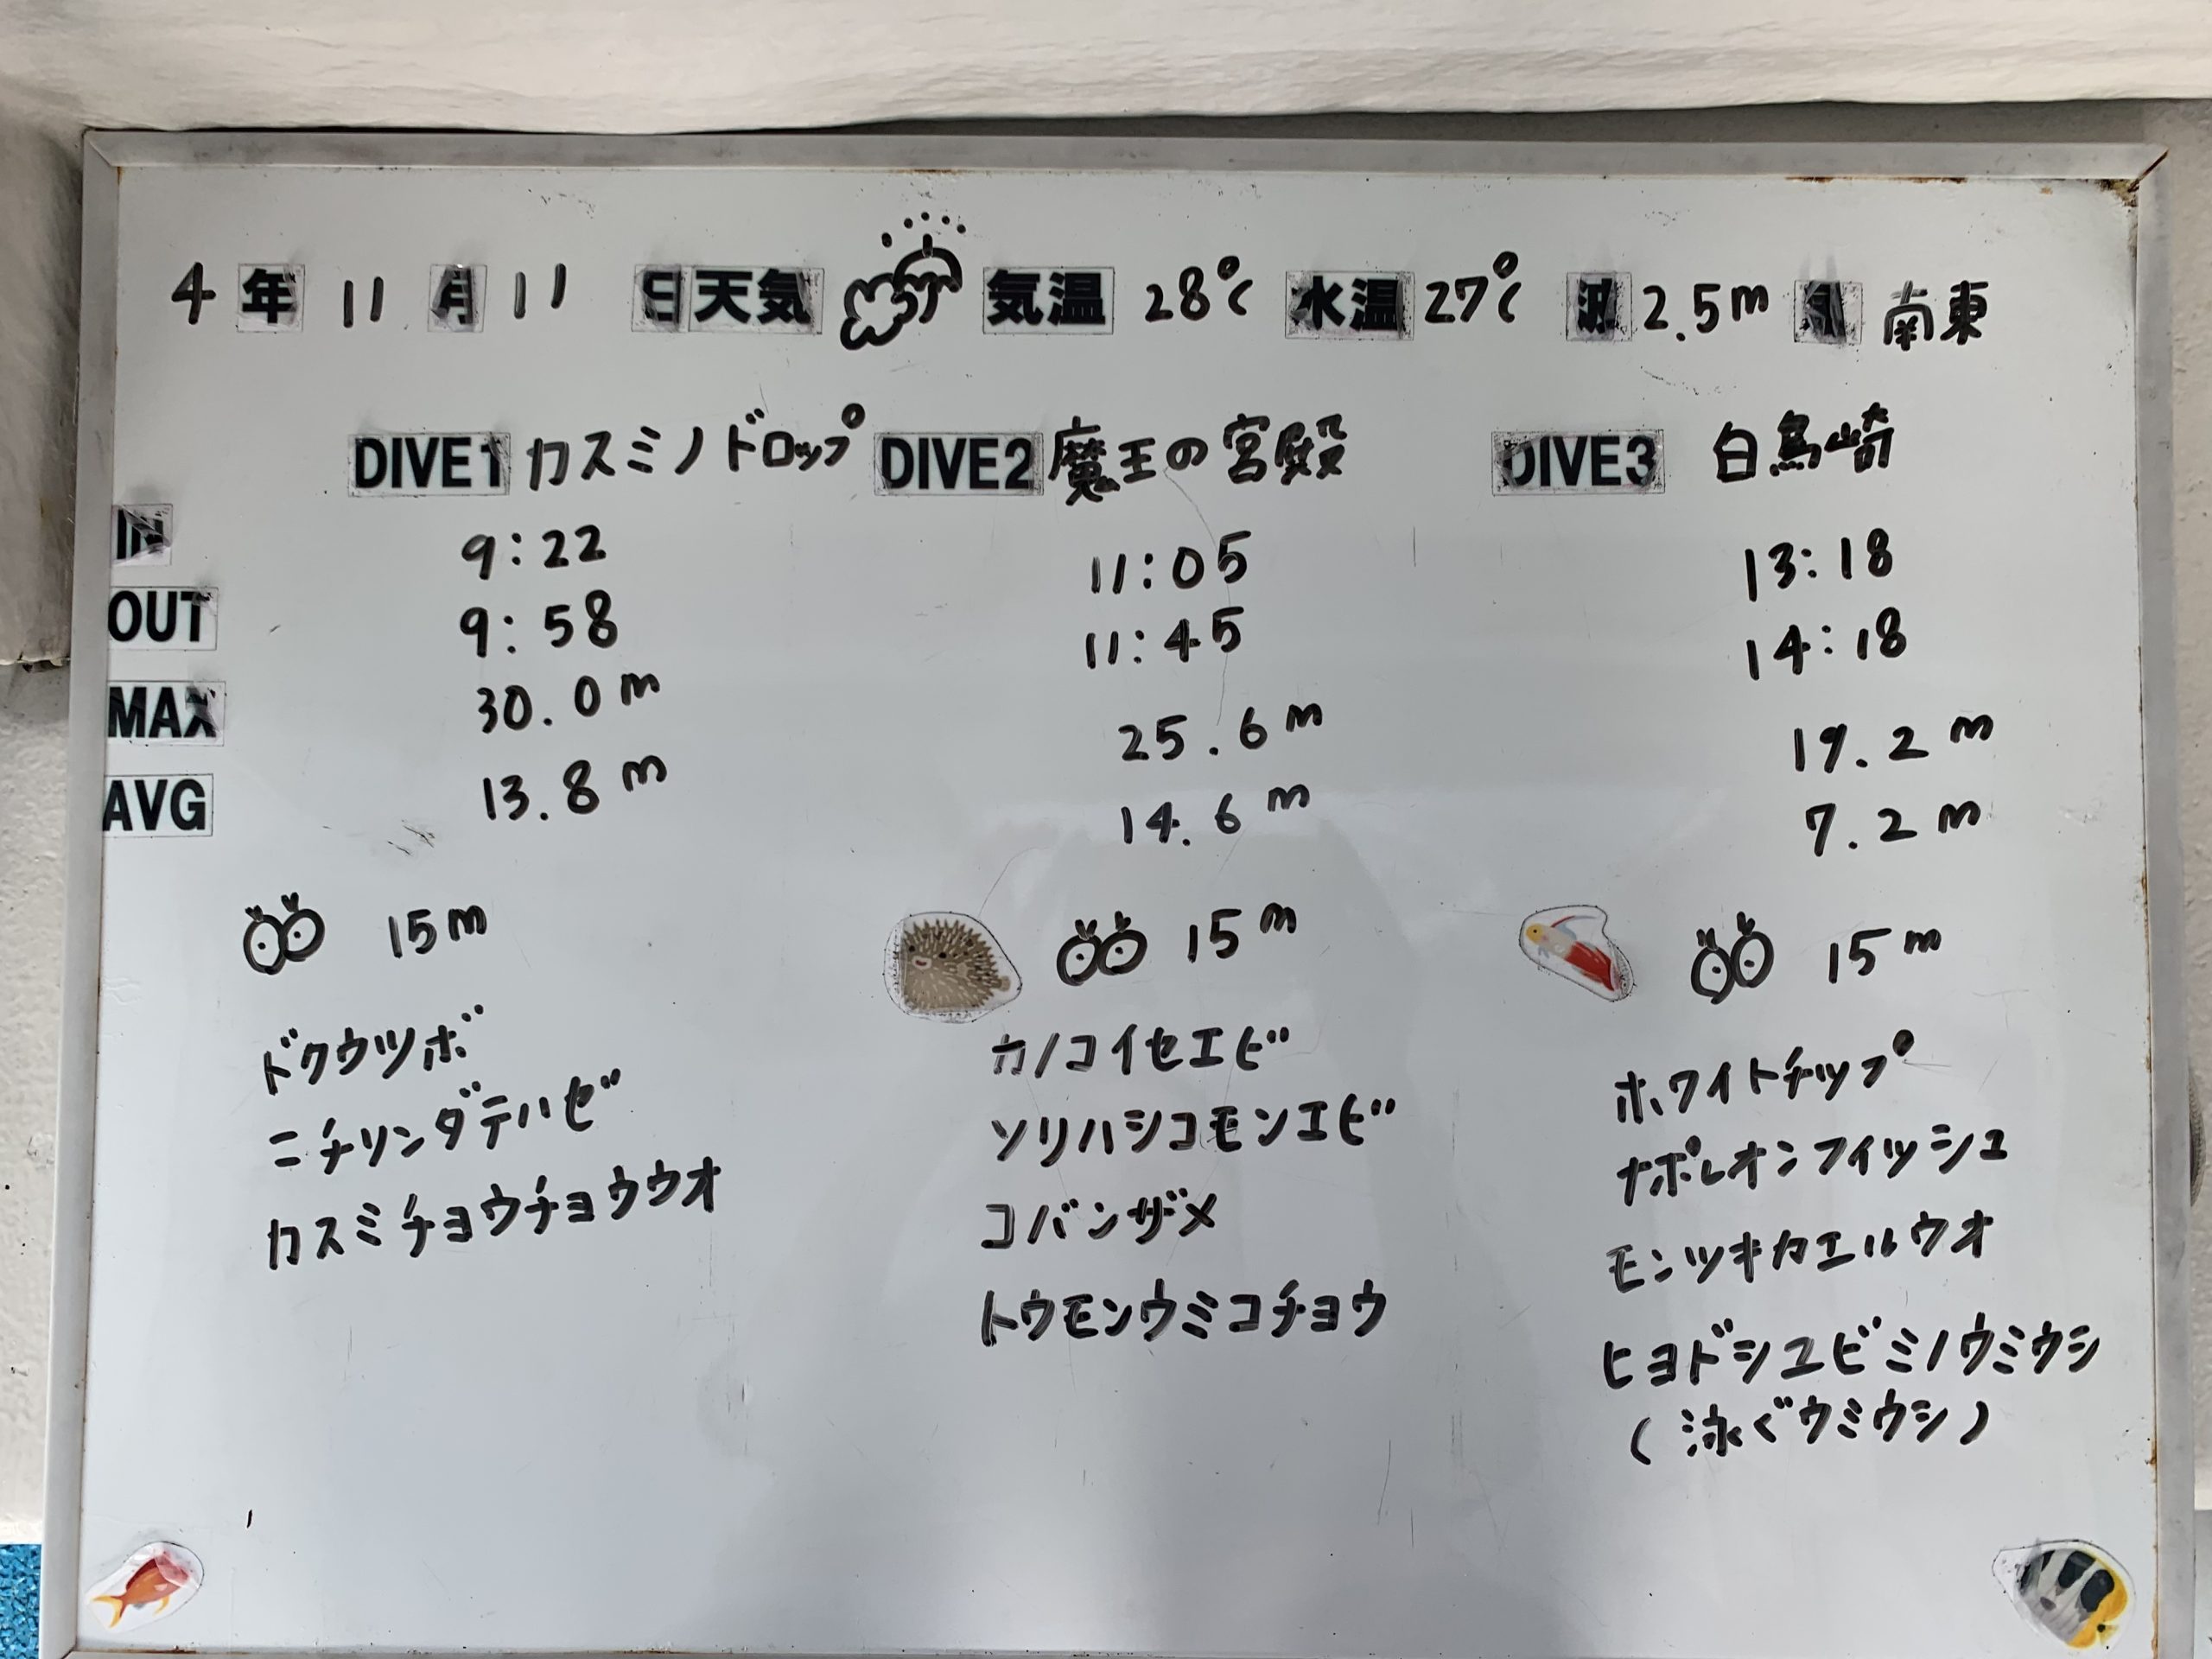 4年 11月 11日 天気 気温 28℃ 水温 27℃ 波 2.5m 風 南東
DIVE1 カスミノドロップ DIVE2 魔王の宮殿 DIVE3 白鳥崎
IN 9:22 11:05 13:18
OUT 9:58 11:45 14:18
MAX 30.0m 25.6m 19.2m
AVG 13.8m 14.6m 7.2m
15m 15m 15m
ドクウツボ
ニチリンダテハゼ
カスミチョウチョウウオ
カノコイセエビ
ソリハシコモンエビ
コバンザメ
トウモンウミコチョウ
ホワイトチップ
ナポレオンフィッシュ
モンツキカエルウオ
ヒヨドシユビミノウミウシ
(泳ぐウミウシ)